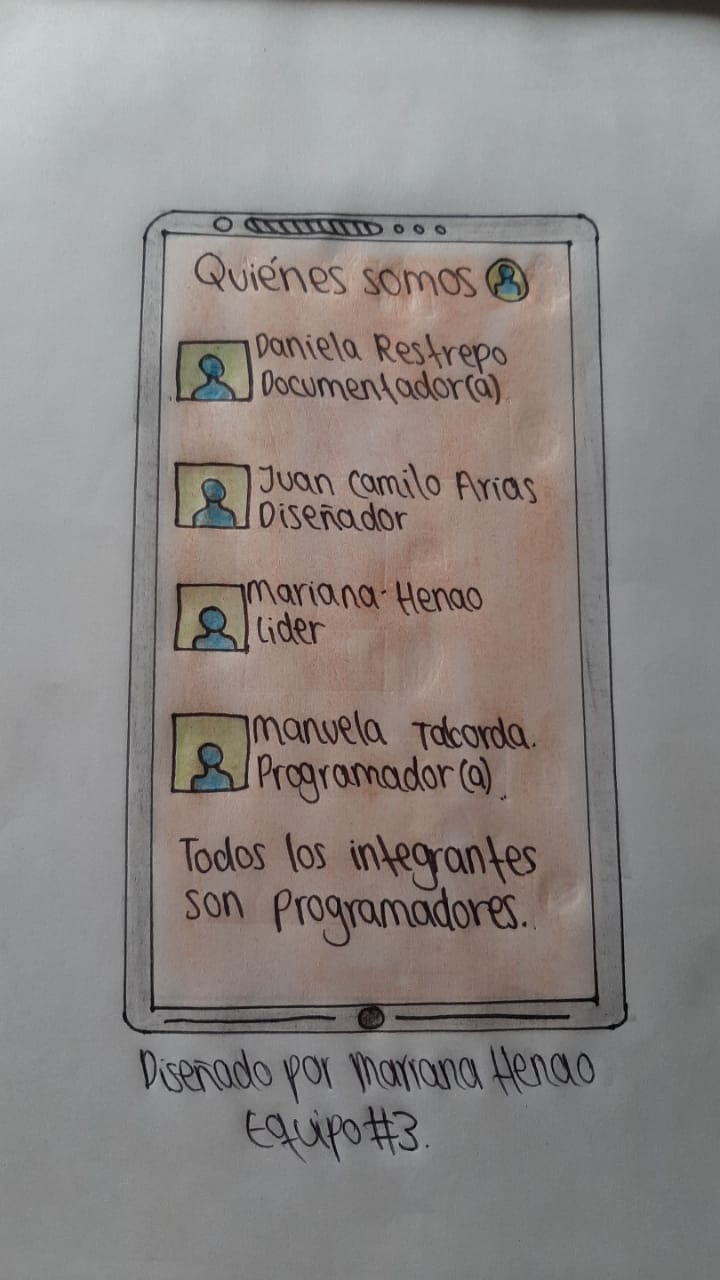 Quiénes somos
Daniela Restrepo
Documentador(a)
Juan Camilo Arias
Diseñador
Mariana Henao
Lider
Manuela
Programador(a)
Todos los integrantes
son Programadores.
Diseñado por Mariana Henao
Equipo #3.